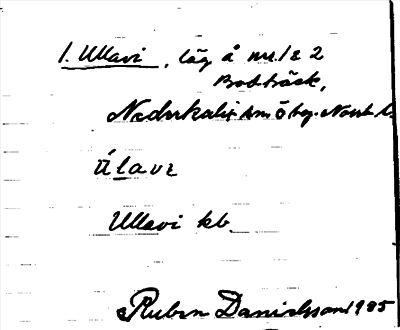 1. Ullavi, låg å nr. 1 & 2
Bodträsk,
Nederkalix sn. Ö bg. Norrb l.
Úlavɛ
Ullavi kb.
Ruben Danielsson 1985